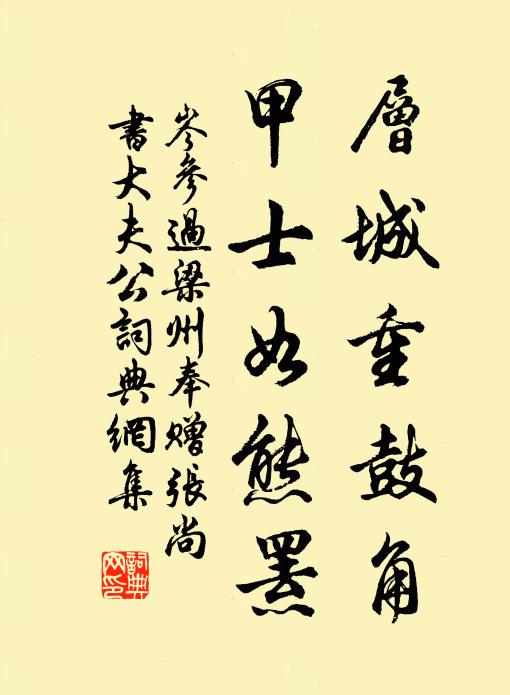 層城重鼓角
甲士如熊羆
岑參過梁州奉贈張尚
書大夫公詞典網集
詞典
网印